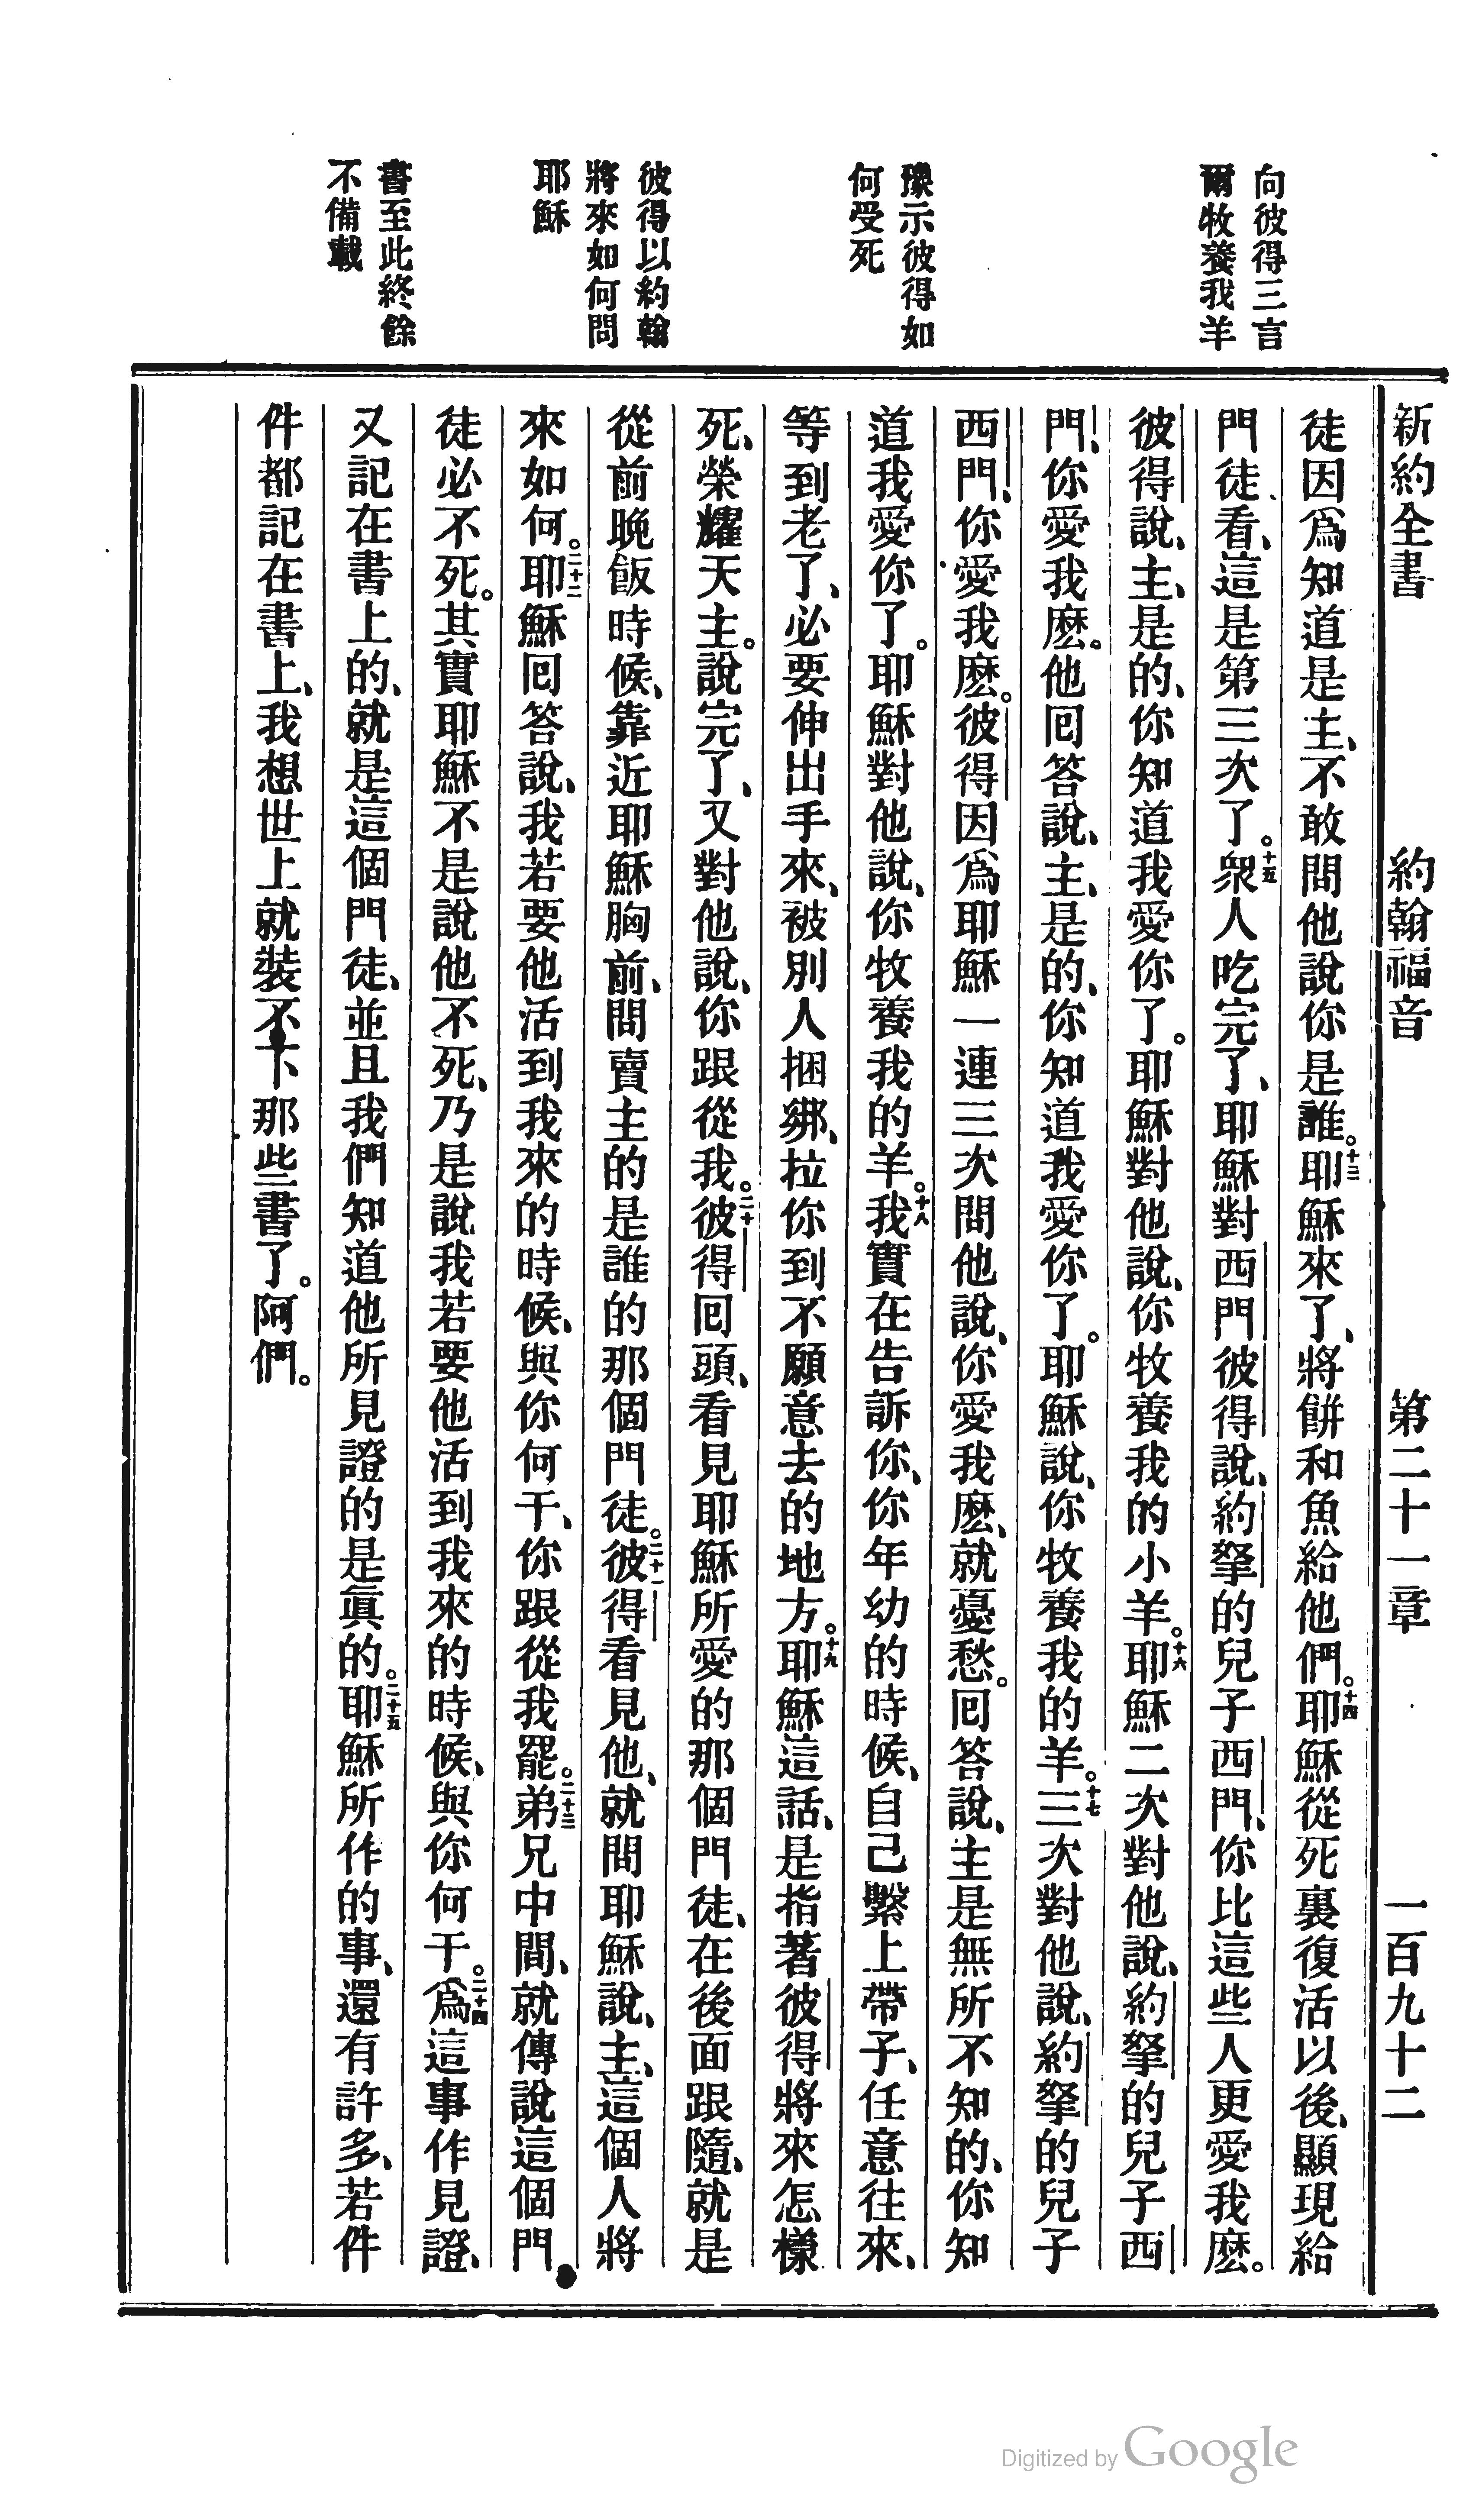 向彼得三言
爾牧養我羊
豫示彼得如
何受死
彼得以約翰
將來如何問
耶穌
書至此終餘
不備載
新約全書 約翰福音 第二十一章 一百九十二
徒因爲知道是主、不敢問他說你是誰。十三耶穌來了、將餠和魚給他們。十四耶穌從死裏復活以後、顯現給
門徒看、這是第三次了。十五衆人吃完了、耶穌對西門彼得說、約拏的兒子西門、你比這些人更愛我麽。
彼得說、主、是的、你知道我愛你了。耶穌對他說、你牧養我的小羊。十六耶穌二次對他說、約拏的兒子西
門、你愛我麽。他回答說、主、是的、你知道我愛你了。耶穌說、你牧養我的羊。十七三次對他說、約拏的兒子
西門、你愛我麽。彼得因爲耶穌一連三次問他說、你愛我麽、就憂愁。回答說、主是無所不知的、你知
道我愛你了。耶穌對他說、你牧養我的羊。十八我實在告訴你、你年幼的時候、自己繫上帶子、任意往來、
等到老了、必要伸出手來、被別人捆綁、拉你到不願意去的地方。十九耶穌這話、是指著彼得將來怎樣
死、榮耀天主。說完了、又對他說、你跟從我。二十彼得回頭、看見耶穌所愛的那個門徒、在後面跟隨、就是
從前晚飯時候、靠近耶穌胸前、問賣主的是誰的那個門徒。二十一彼得看見他、就問耶穌說、主、這個人將
來如何。二十二耶穌回答說、我若要他活到我來的時候、與你何干、你跟從我罷。二十三弟兄中間、就傳說這個門
徒必不死。其實耶穌不是說他不死、乃是說我若要他活到我來的時候、與你何干。二十四爲這事作見證、
又記在書上的、就是這個門徒、並且我們知道他所見證的是眞的。二十五耶穌所作的事、還有許多、若件
件都記在書上、我想世上就裝不下那些書了。阿們。
Digitized by Google